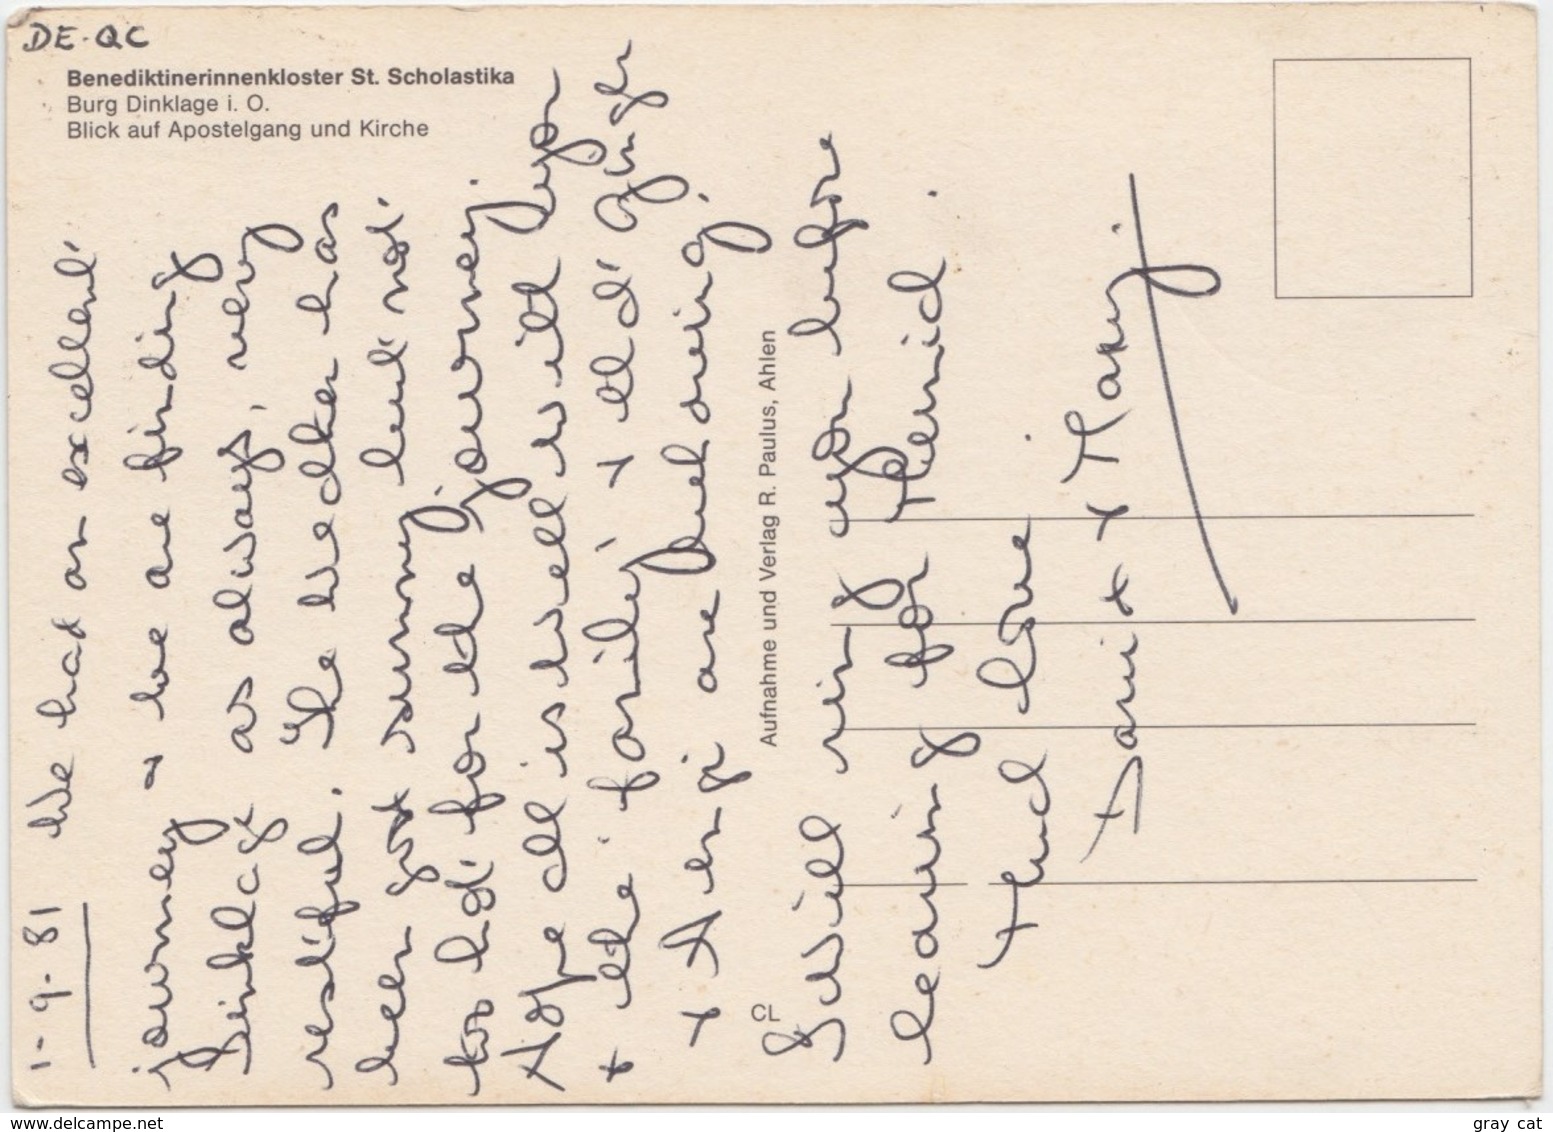 DE-QC
Benediktinerinnenkloster St. Scholastika
Burg Dinklage i. O.
Blick auf Apostelgang und Kirche
1-9-81 We had an excellent
journey & we are finding
Dinklage as always, very
restful. The weather has
been good sunny but not
too hot for the journey.
Hope all is well with you
& the family, & that
& are behaving.
I will ring you before
leaving for
Much love
David & Mary
CL
Aufnahme und Verlag R. Paulus, Ahlen
www.delcampe.net
gray cat